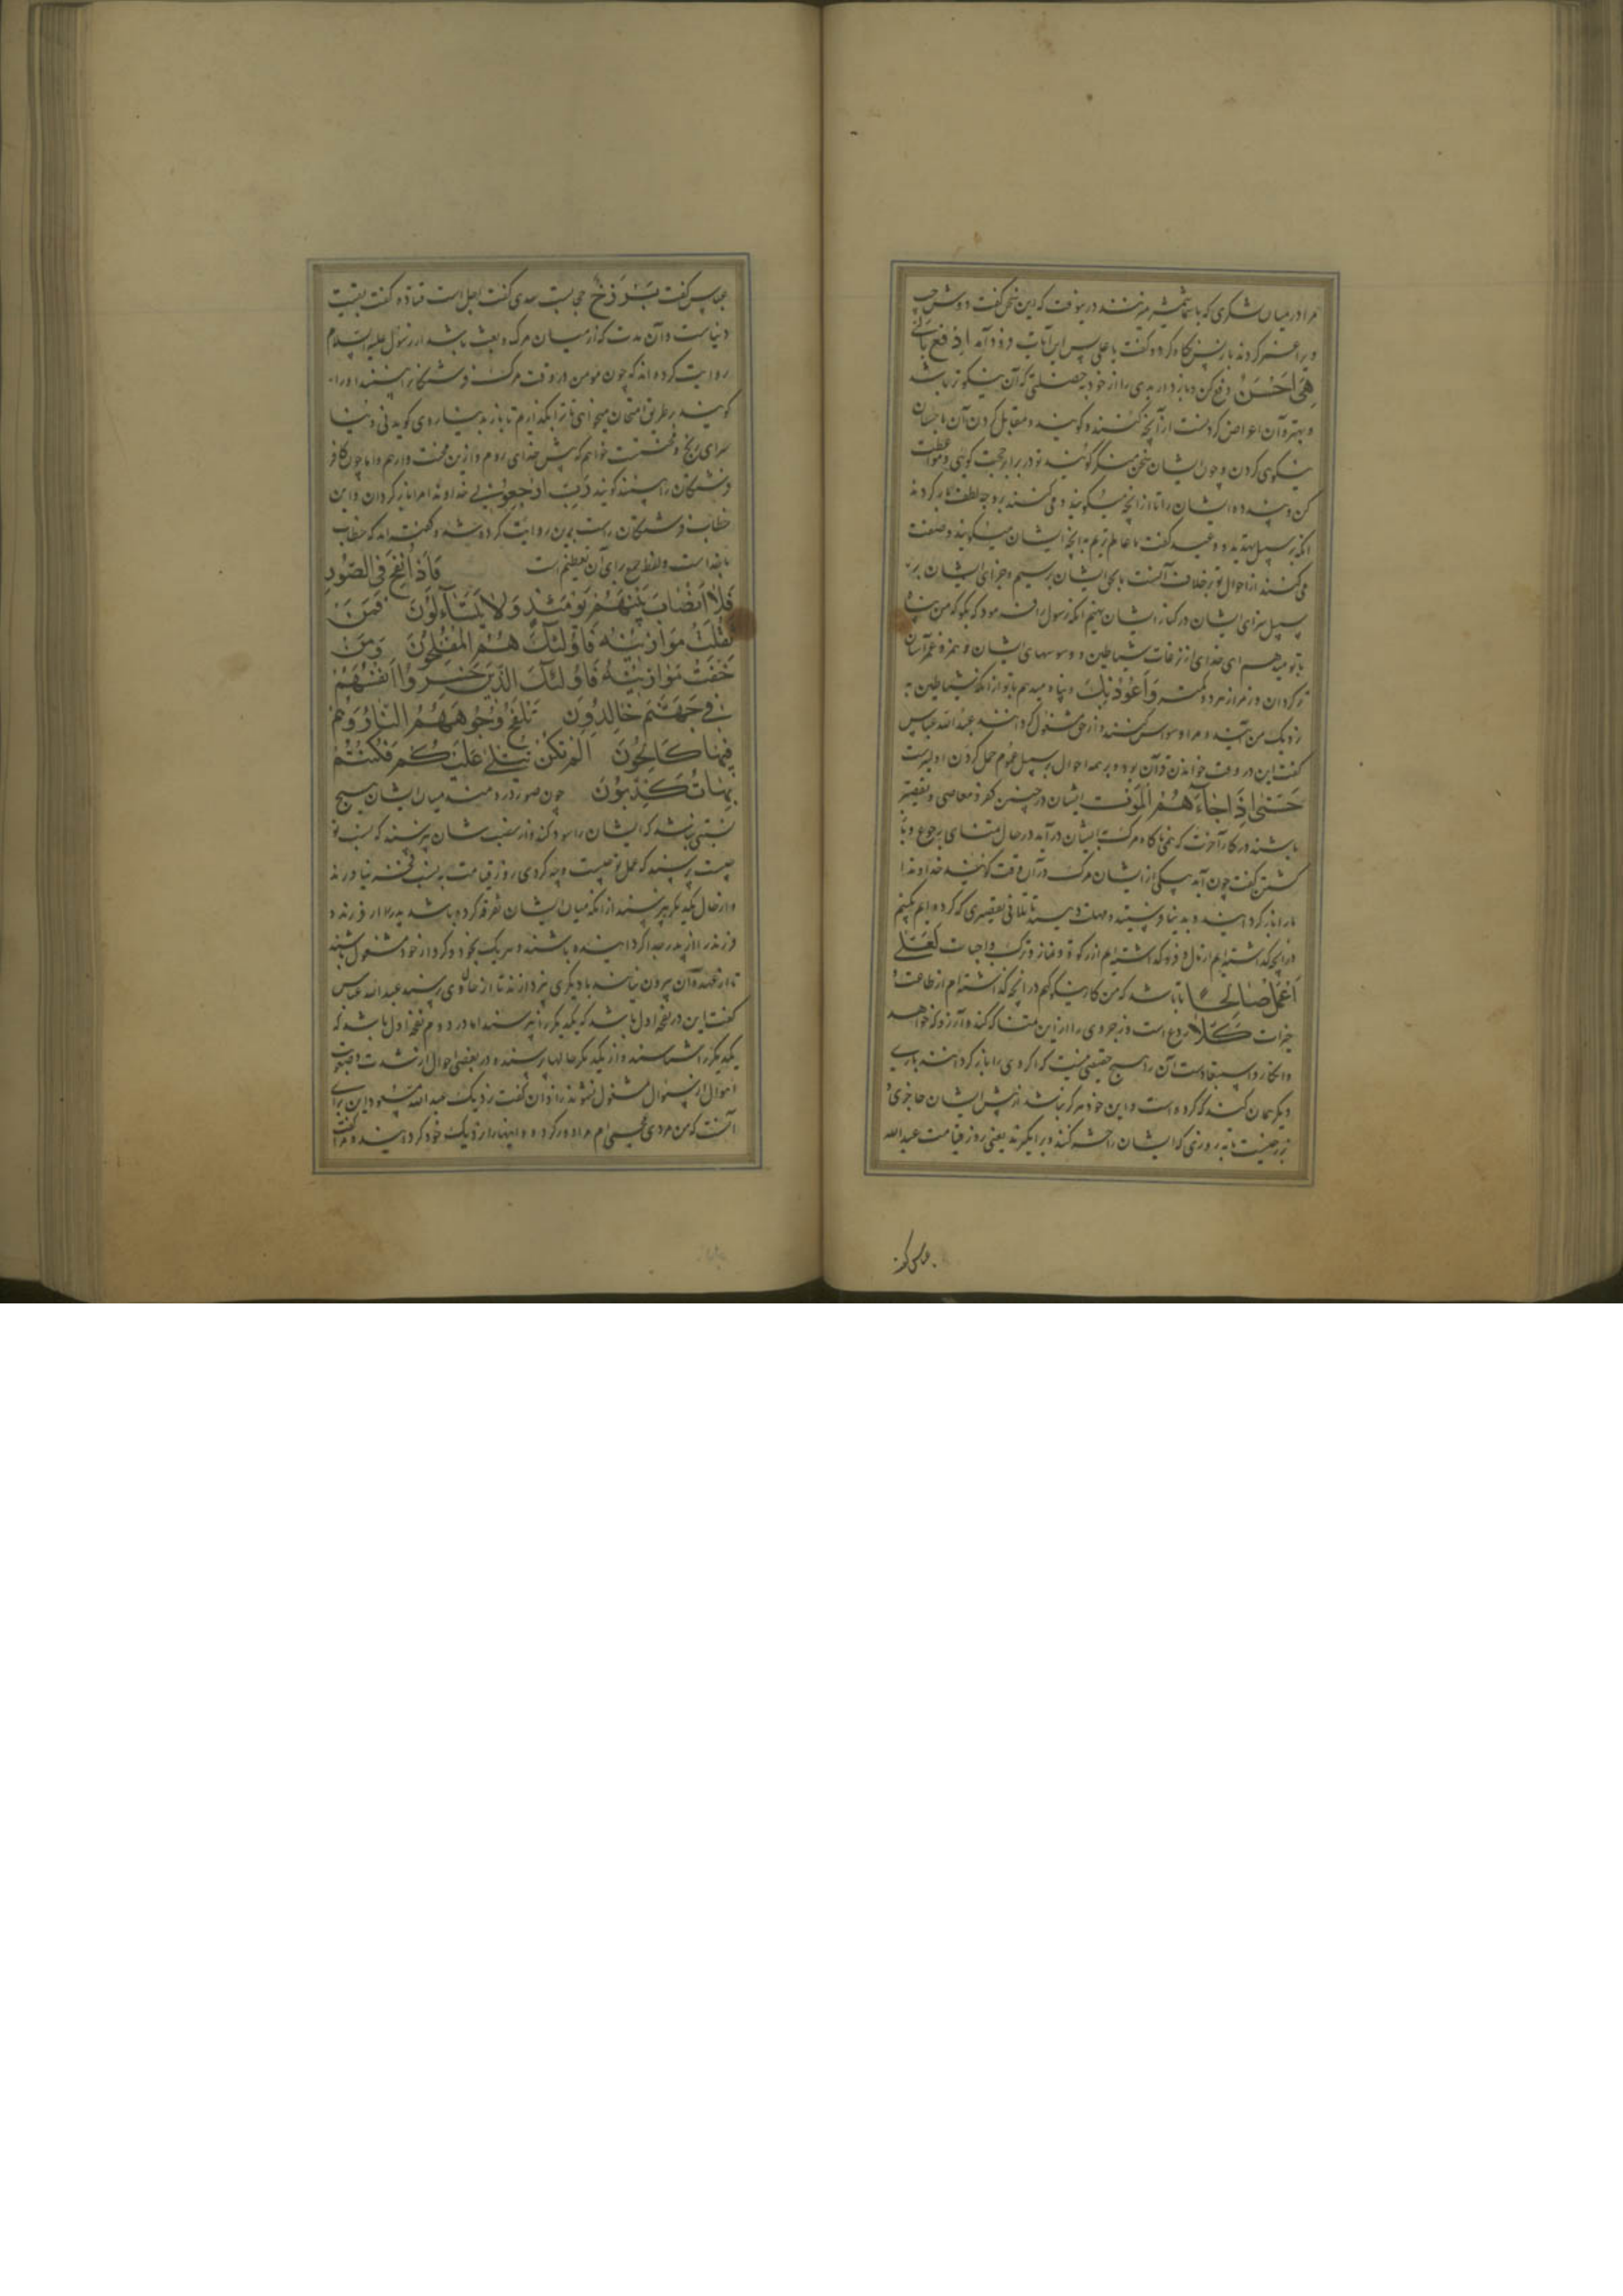 مرا در میان لشکری که با شمشیر میزنند در میوفت که این سخن گفت دوش چپ
ویرا کردند باز پس نگاه کرد و گفت یا علی پس این آیات فرود آمد ادْفَعْ بِالَّتِی
هِیَ اَحْسَنُ دفع کن و باز دار بدی را از خود به خصلتی که آن نیکوتر باشد
و بهتر و آن اعراض کردنست از آنچه کنند و گویند و مقابل کردن آن باحسان
نیکوی کردن و چون ایشان سخن منکر گویند تو در برابر حجت کوی و موعظت
کن و پند ده ایشان را تا از آنچه میگویند و می کنند بر وجه لطف باز گردند
انگه بر سبیل تهدید و وعید گفت ما عالم تریم بدانچه ایشان میگویند و صفت
می کنند از احوال تو بر خلاف آنست ما بحق ایشان برسیم و جزای ایشان بر
سبیل سزای ایشان در کنار ایشان نهیم انگه رسول را فرمود که بگو که من پناه
با تو میدهم ای خدای از نزغات شیاطین و وسوسهای ایشان و همز و غمز آسان
وَاَعُوذُ بِکَ و پناه میدهم با تو از آنکه شیاطین به
نزدیک من آیند و مرا وسواس کنند و از حق مشغول گردانند عبد الله عباس
گفت این در وقت خواندن قرآن بود و بر همه احوال بر سبیل عموم حمل کردن اولیترست
حَتّٰی اِذَا جَآءَ هُمُ الْمَوْت ایشان در چنین کفر و معاصی و تقصیر
باشند در کار آخرت که همی ناگاه مرگ بایشان در آید در حال متمنای رجوع و با
گشتن گفت چون آید بیکی از ایشان مرگ در آن وقت گوید خداوندا
ما را باز گردانید و بدنیا فرستید و مهلت دهید تا تلافی تقصیری که کرده ایم بکنیم
در آنچه گذاشته ایم از مال و فرو گذاشته ایم از زکوة و نماز و ترک واجبات لَعَلّی
اَعْمَلُ صَالِحًا تا باشد که من کار نیکو کنم در آنچه گذاشته ام از طاعت و
خیرات کَلَّا ردع است و زجر وی را از این تمنا که کند و آرزو که خواهد
و انکار و استبعادست آن را هیچ حقیقتی نیست که اگر وی را باز گردانند باری
دیگر همان کند که کرده است و این خود هرگز نباشد از پس ایشان حاجزی و
برزخیست تا به روزی که ایشان را حشر کنند و برانگیزند یعنی روز قیامت عبد الله
عباس گفت
عباس گفت بَرْزَخٌ حجابیست سدی گفت اجل است قتاده گفت بقیت
دنیاست و آن مدت که از میان مرگ و بعث باشد از رسول علیه السلام
روایت کرده اند که چون مومن در وقت مرگ فرشتگان را بیند او را
گویند بر طریق امتحان میخواهی تا ترا بگذاریم تا باز بدنیا روی گوید نی دنیا
سرای رنج و محنتست خواهم که پیش خدای روم و ازین محنت وارهم و اما چون کافر
فرشتگان را بیند گوید رَبِّ ارْجِعُونِ یعنی خداوندا مرا باز گردان و این
خطاب فرشتگان راست برین روایت کرده شد و گفته اند که خطاب
با خداست و لفظ جمع برای آن تعظیم است فَاِذَا نُفِخَ فِی الصُّورِ
فَلَا اَنْسَابَ بَیْنَهُمْ یَوْمَئِذٍ وَلَا یَتَسَآءَلُونَ فَمَنْ
ثَقُلَتْ مَوَازِینُهُ فَاُولٰئِکَ هُمُ الْمُفْلِحُونَ وَمَنْ
خَفَّتْ مَوَازِینُهُ فَاُولٰئِکَ الَّذِینَ خَسِرُوا اَنْفُسَهُمْ
فِی جَهَنَّمَ خَالِدُونَ تَلْفَحُ وُجُوهَهُمُ النَّارُ وَهُمْ
فِیهَا کَالِحُونَ اَلَمْ تَکُنْ تُتْلٰی عَلَیْکُمْ فَکُنْتُمْ
بِهَا تُکَذِّبُونَ چون صور در دمند میان ایشان هیچ
نسبتی نباشد که ایشان را سود کند و از نسبت شان نپرسند که نسب تو
چیست پرسند که عمل تو چیست و چه کردی روز قیامت به نسب فخر نیاورند
و از حال یکدیگر نپرسند از آنکه میان ایشان تفرقه کرده باشد پدر را از فرزند و
فرزند را از پدر جدا گردانیده باشند و هر یک بخود و کردار خود مشغول باشند
تا از عهده آن بیرون نیایند با دیگری نپردازند تا از حال وی پرسند عبد الله عباس
گفت این در نفخه اول باشد که یکدیگر را نپرسند اما در دوم نفخه اول باشد که
یکدیگر را شناسند و از یکدیگر حالها پرسند و در بعضی احوال از شدت و صعوبت
اهوال از سوال مشغول شوند زاذان گفت نزدیک عبد الله مسعود این برای
آنست که من مردی عجمی ام مرا دور کرده و اینها را نزدیک خود گردانیده و مرا گفت